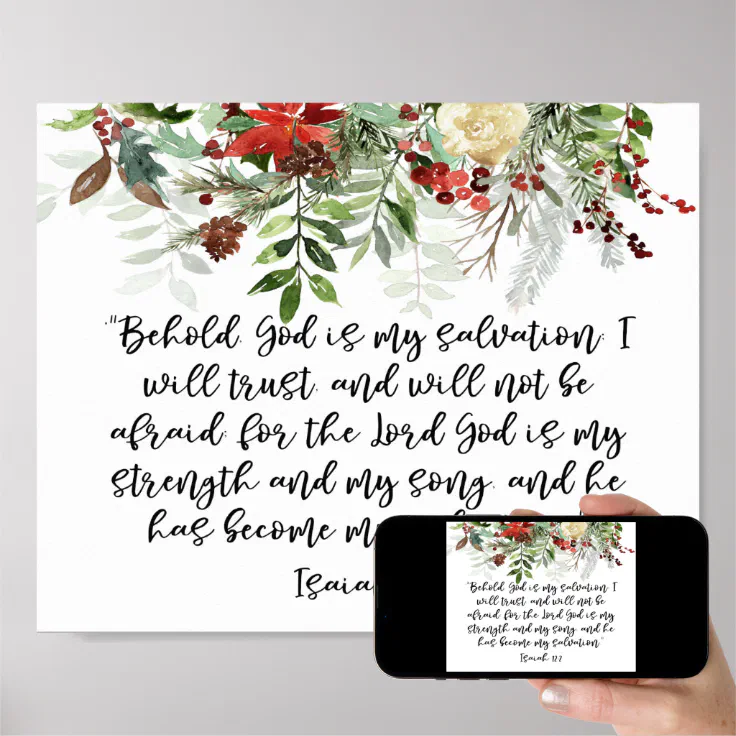 "Behold, God is my salvation; I
will trust, and will not be
afraid; for the Lord God is my
strength and my song, and he
has become
"Behold, God is my salvation; I
will trust, and will not be
afraid; for the Lord God is my
strength and my song, and he
has become my salvation."
Isaiah 12:2